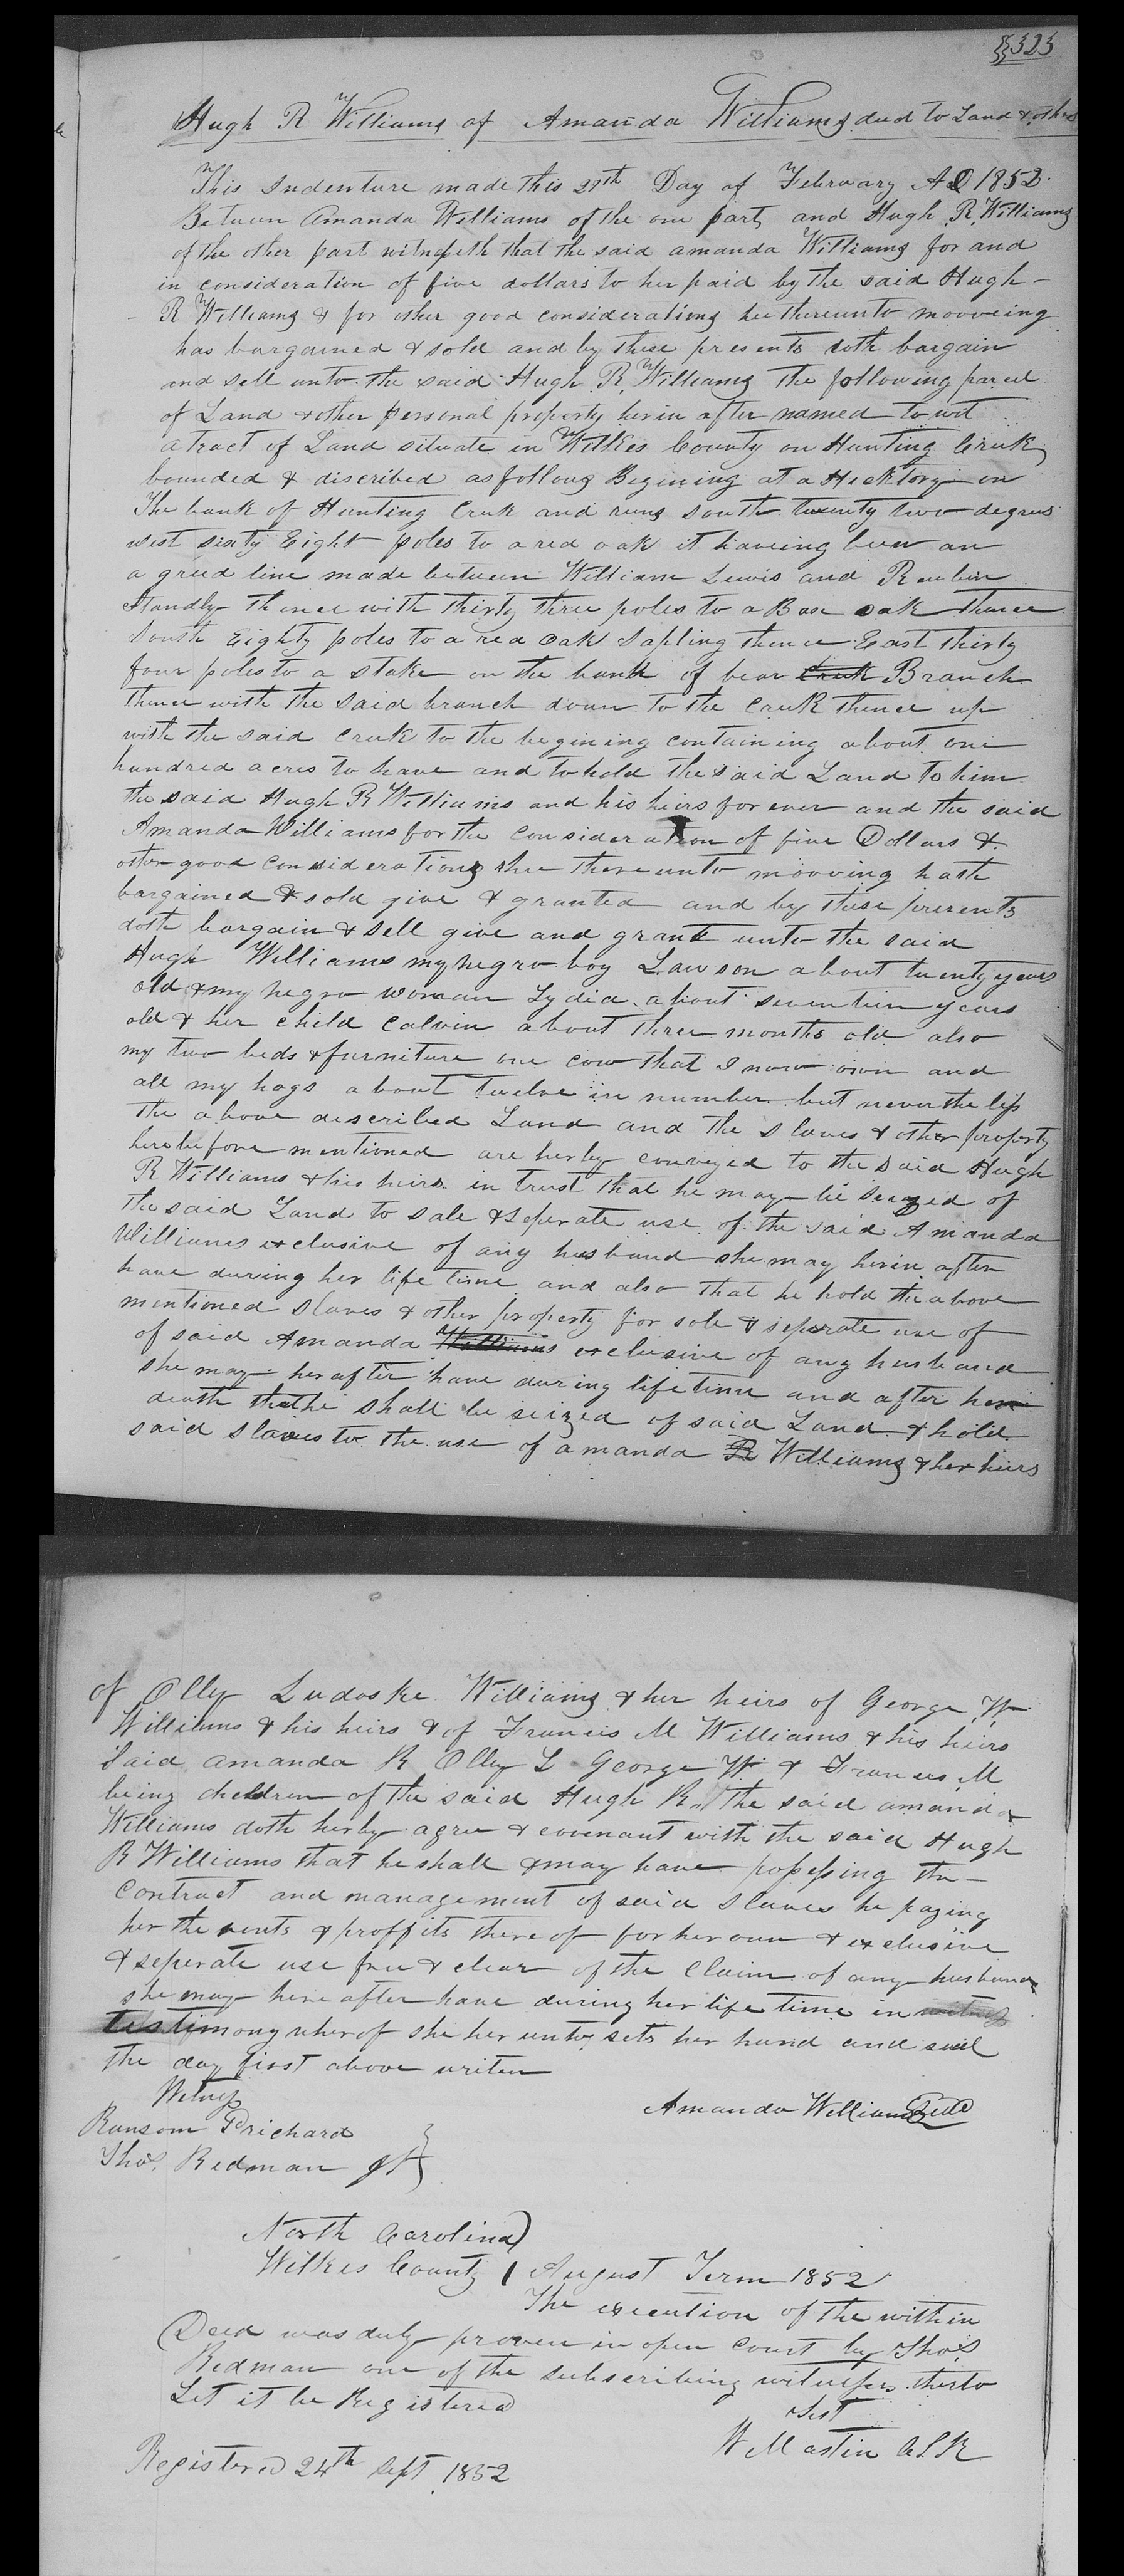 323
Hugh R Williams of Amanda Williams deed to Land & others
This Indenture made this 27th Day of February AD 1852.
Between Amanda Williams of the one part, and Hugh R. Williams
of the other part witnesseth that the said amanda Williams for and
in consideration of five dollars to her paid by the said Hugh -
R Williams & for other good considerations her thereunto mooveing
has bargained & sold and by these presents doth bargain
and sell unto the said Hugh R. Williams the following parcel
of Land & other personal property herin after named to wit
a tract of Land situate in Wilkes County on Hunting Creek
bounded & discribed as follows Begining at a Hicktory on
The bank of Hunting Creek and runs south twenty two degrees
west sixty Eight poles to a red oak it haveing been an
a greed line made between William Lewis and Reubin
Standly thence with thirty three poles to a Box oak thence
South Eighty poles to a red oak Sapling thence East thirty
four poles to a stake on the bank of bear Creek Branch
thence with the said branch down to the Creek thence up
with the said Creek to the begining containing about one
hundred acres to have and to hold the said Land to him
the said Hugh R Williams and his heirs for ever and the said
Amanda Williams for the consideration of five Dollars &
other good considerations shee thereunto mooving hath
bargained & sold give & granted and by these presents
doth bargain & sell give and grant unto the said
Hugh Williams my negro boy Lawson about twenty years
old & my negro woman Lydia about seventeen years
old & her child Calvin about three months old also
my two beds & furniture one cow that I now own and
all my hogs about twelve in number but never the less
the above described Land and the slaves & other property
herebefore mentioned are herby conveyed to the said Hugh
R Williams & his heirs in trust that he may be seized of
the said Land to sale & seperate use of the said Amanda
Williams exclusive of any husband she may herin after
have during her life time and also that he hold the above
mentioned slaves & other property for sole & seperate use of
of said Amanda Williams exclusive of any husband
she may herafter have during lifetime and after her
death that he shall be seized of said Land & hold
said slaves to the use of amanda R Williams & her heirs
of Olly Ludoske Williams & her heirs of George W
Williams & his heirs & of Francis M Williams & his heirs
Said amanda R Olly L George W & Francis M
being children of the said Hugh R. the said amanda
Williams doth herby agree & covenant with the said Hugh
R Williams that he shall & may have possessing the -
Contract and management of said slaves he paying
her the rents & proffits there of for her own & exclusive
& seperate use free & clear of the claim of any husband
she may here after have during her life time in witness
testimony wherof she her unto sets her hand and seal
the day first above writen
Witness
Amanda Williams Seal
Ransom Prichard
Thos. Redman Jr
North Carolina
Wilkes County August Term 1852
The execution of the within
Deed was duly proven in open Court by Thos
Redman one of the subscribing witnesses therto
Let it be Registered
Test
W Mastin CLK
Registered 24th Sept. 1852